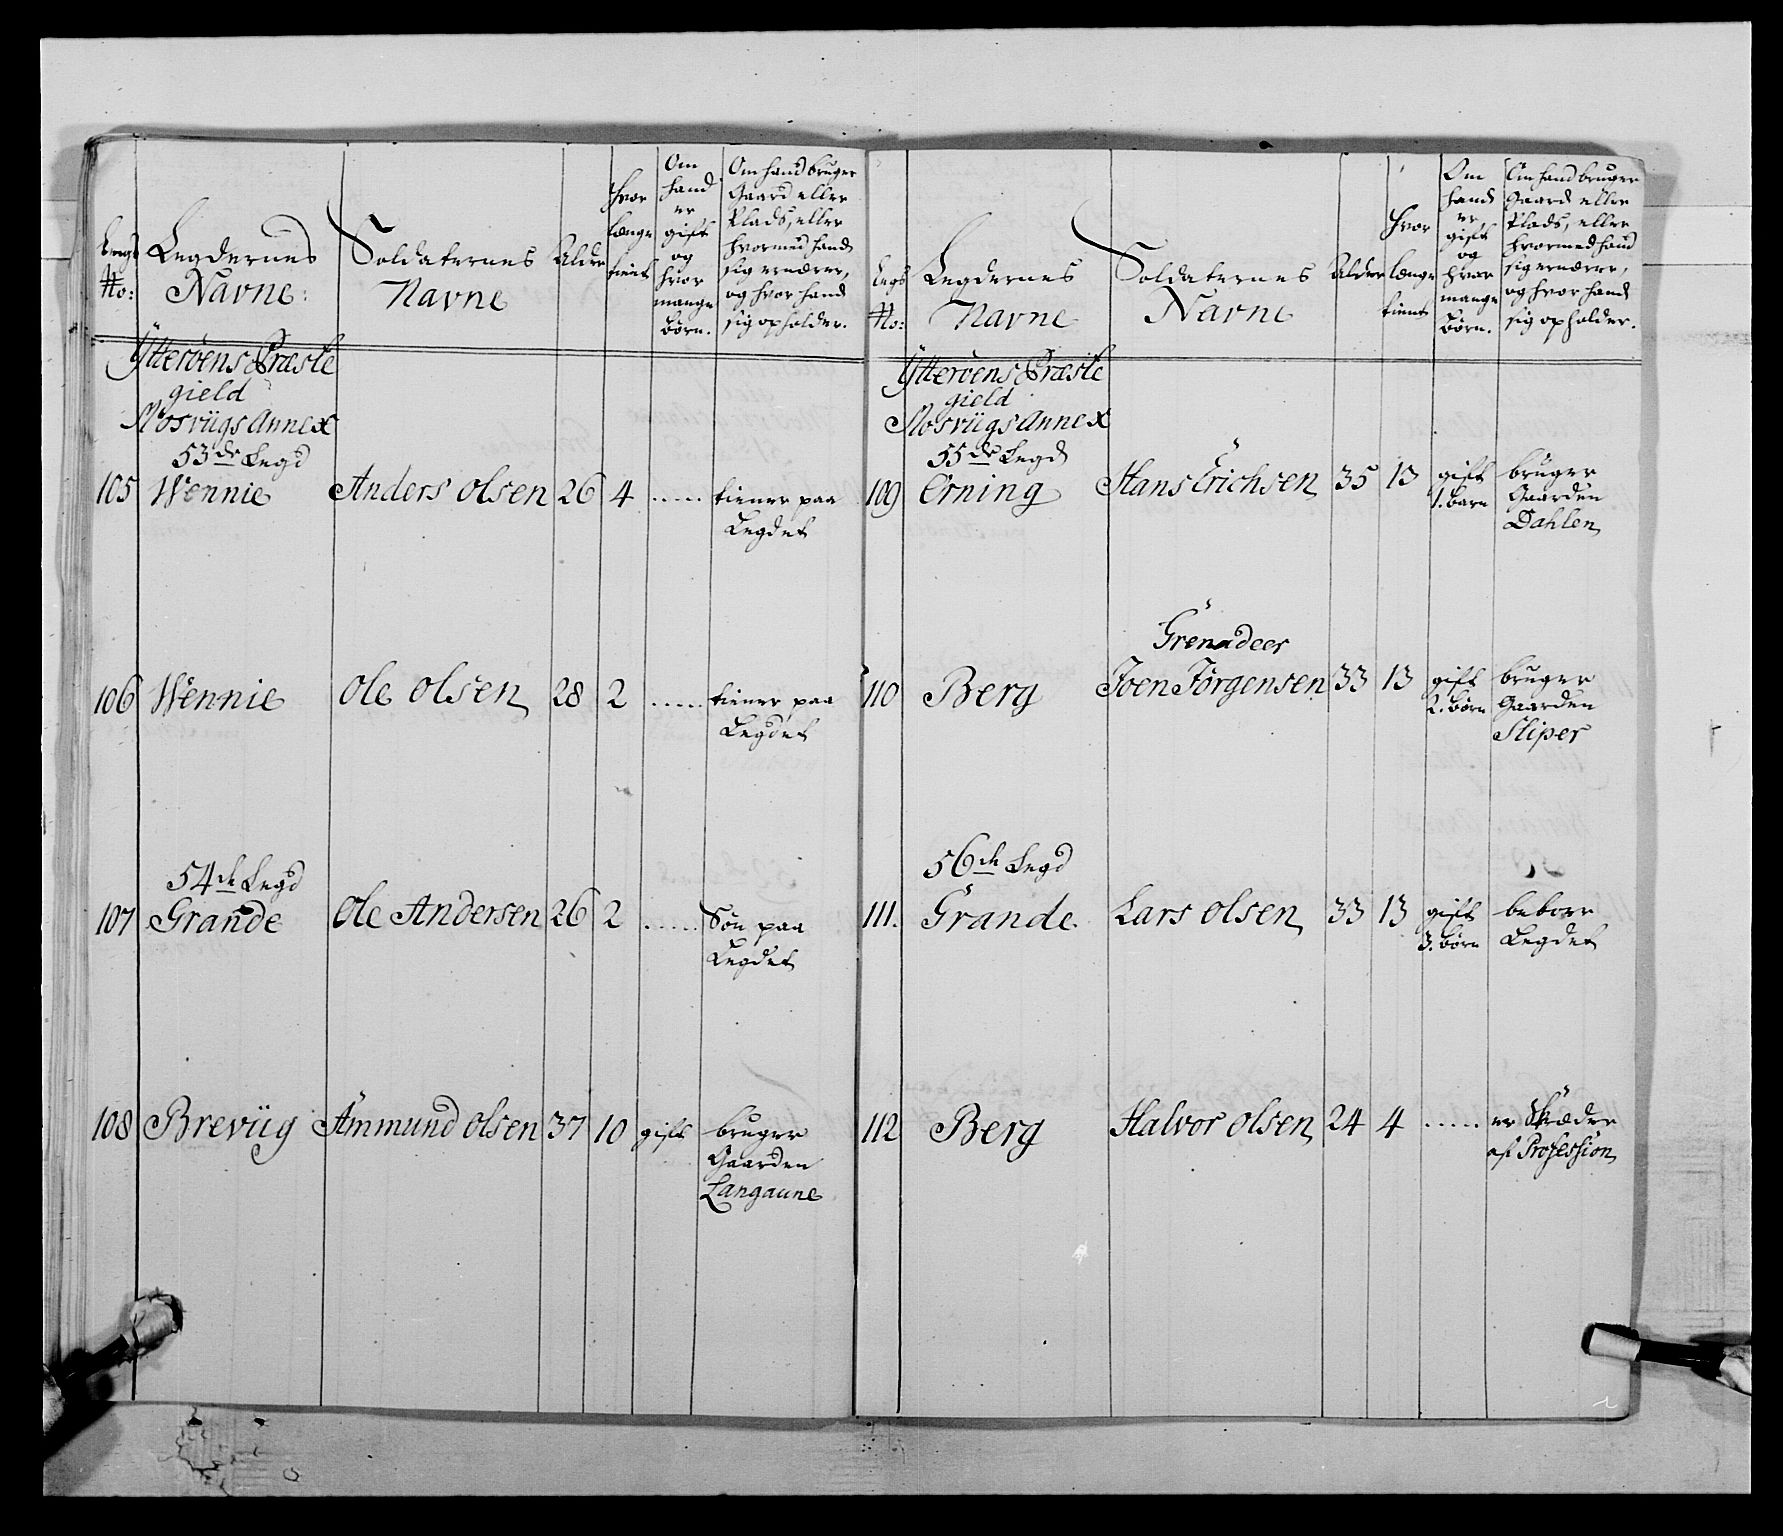 Legs No: | Legdernes Navne: | Soldaternes Navne | Alder | hvor længe tient | Om hand er gift og hvor mange børn. | Om hand bruger Gaard eller Plads, eller hvormed hand sig ernærer, og hvor hand sig opholder.
Ytterøens Præste
gield
Mosviigs Annex
53de Legd
105 Wennie Anders Olsen 26 4 ..... tiener paa
Legdet
106 Wennie Ole Olsen 28 2 ..... tiener paa
Legdet
54de Legd
107 Grande Ole Andersen 26 2 ..... Søn paa
Legdet
108 Breviig Ammund Olsen 37 10 gift bruger
Gaarden
Langaune
Legs No: | Legdernes Navne | Soldaternes Navne | Alder | hvor længe tient | Om hand er gift og hvor mange børn. | Om hand bruger Gaard eller Plads, eller hvormed hand sig ernærer, og hvor hand sig opholder.
Ytterøens Præste
gield
Mosviigs Annex
55de Legd
109 Erning Hans Erichsen 35 13 gift bruger
1. barn Gaarden
Dahlen
Grenadeer
110 Berg Joen Jørgensen 33 13 gift bruger
2. børn Gaarden
Sliper
56de Legd
111. Grande Lars Olsen 33 13 gift beboer
3. børn Legdet
112 Berg Halvor Olsen 24 4 ..... er Skrædder
af Profession